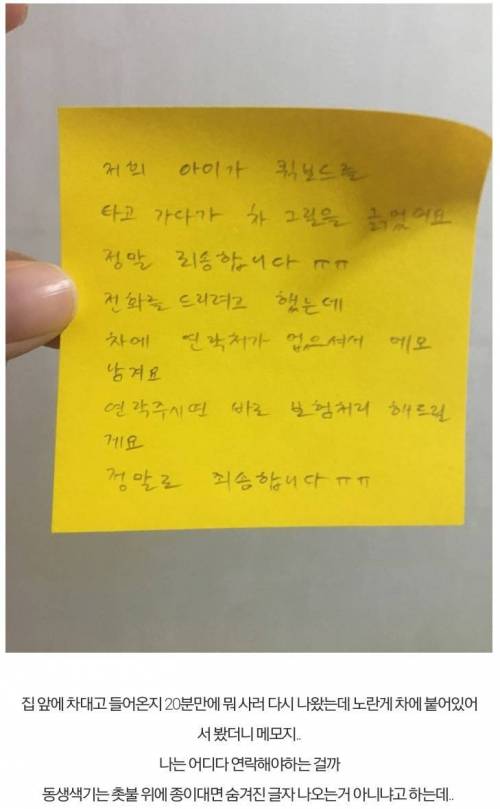 저희 아이가 퀵보드를
타고 가다가 차 그릴을 긁었어요
정말 죄송합니다 ㅠㅠ
전화를 드리려고 했는데
차에 연락처가 없으셔서 메모
남겨요
연락주시면 바로 보험처리 해드릴
게요
정말로 죄송합니다 ㅠㅠ
집 앞에 차대고 들어온지 20분만에 뭐 사러 다시 나왔는데 노란게 차에 붙어있어
서 봤더니 메모지..
나는 어디다 연락해야하는 걸까
동생색기는 촛불 위에 종이대면 숨겨진 글자 나오는거 아니냐고 하는데..